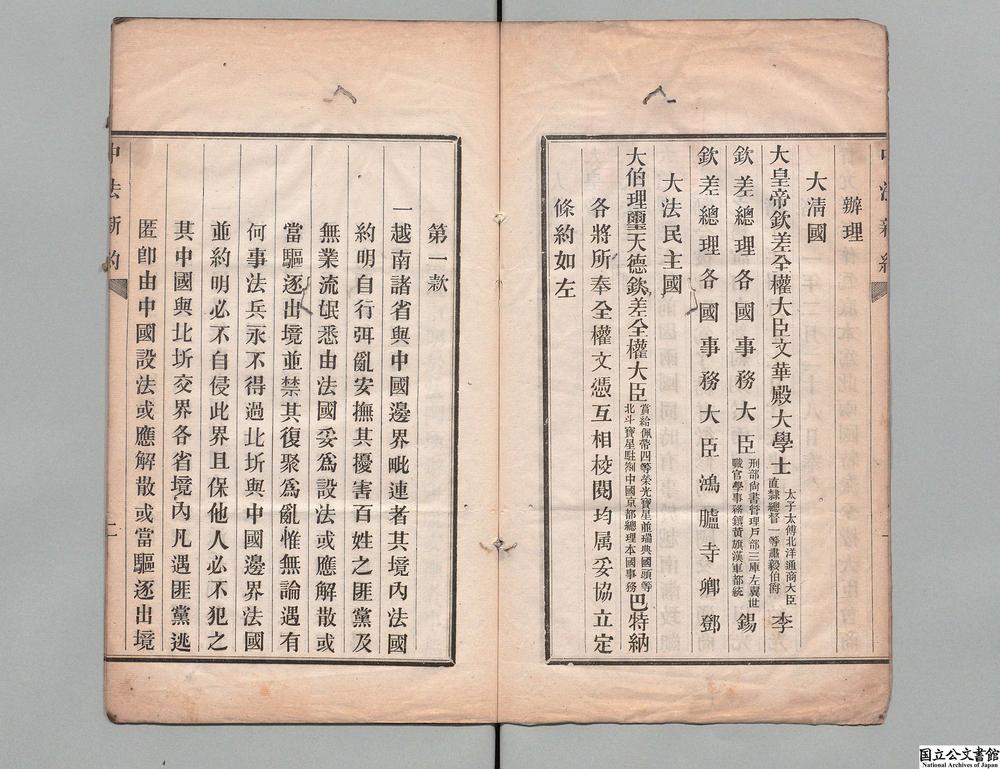 辦理
大清國
大皇帝欽差全權大臣文華殿大學士太子太傅北洋通商大臣直隸總督一等肅毅伯爵李
欽差總理各國事務大臣刑部尚書管理戶部三庫左翼世職官學事務鑲黃旗漢軍都統錫
欽差總理各國事務大臣鴻臚寺卿鄧
大法民主國
大伯理璽天德欽差全權大臣賞給佩帶四等榮光寶星並瑞典國頭等北斗寶星駐劄中國京都總理本國事務巴特納
各將所奉全權文憑互相校閱均屬妥協立定
條約如左
第一款
一越南諸省與中國邊界毗連者其境內法國
約明自行弭亂安撫其擾害百姓之匪黨及
無業流氓悉由法國妥為設法或應解散或
當驅逐出境並禁其復聚為亂惟無論遇有
何事法兵永不得過北圻與中國邊界法國
並約明必不自侵此界且保他人必不犯之
其中國與北圻交界各省境內凡遇匪黨逃
匿卽由中國設法或應解散或當驅逐出境
中法新約
二
国立公文書館
National Archives of Japan